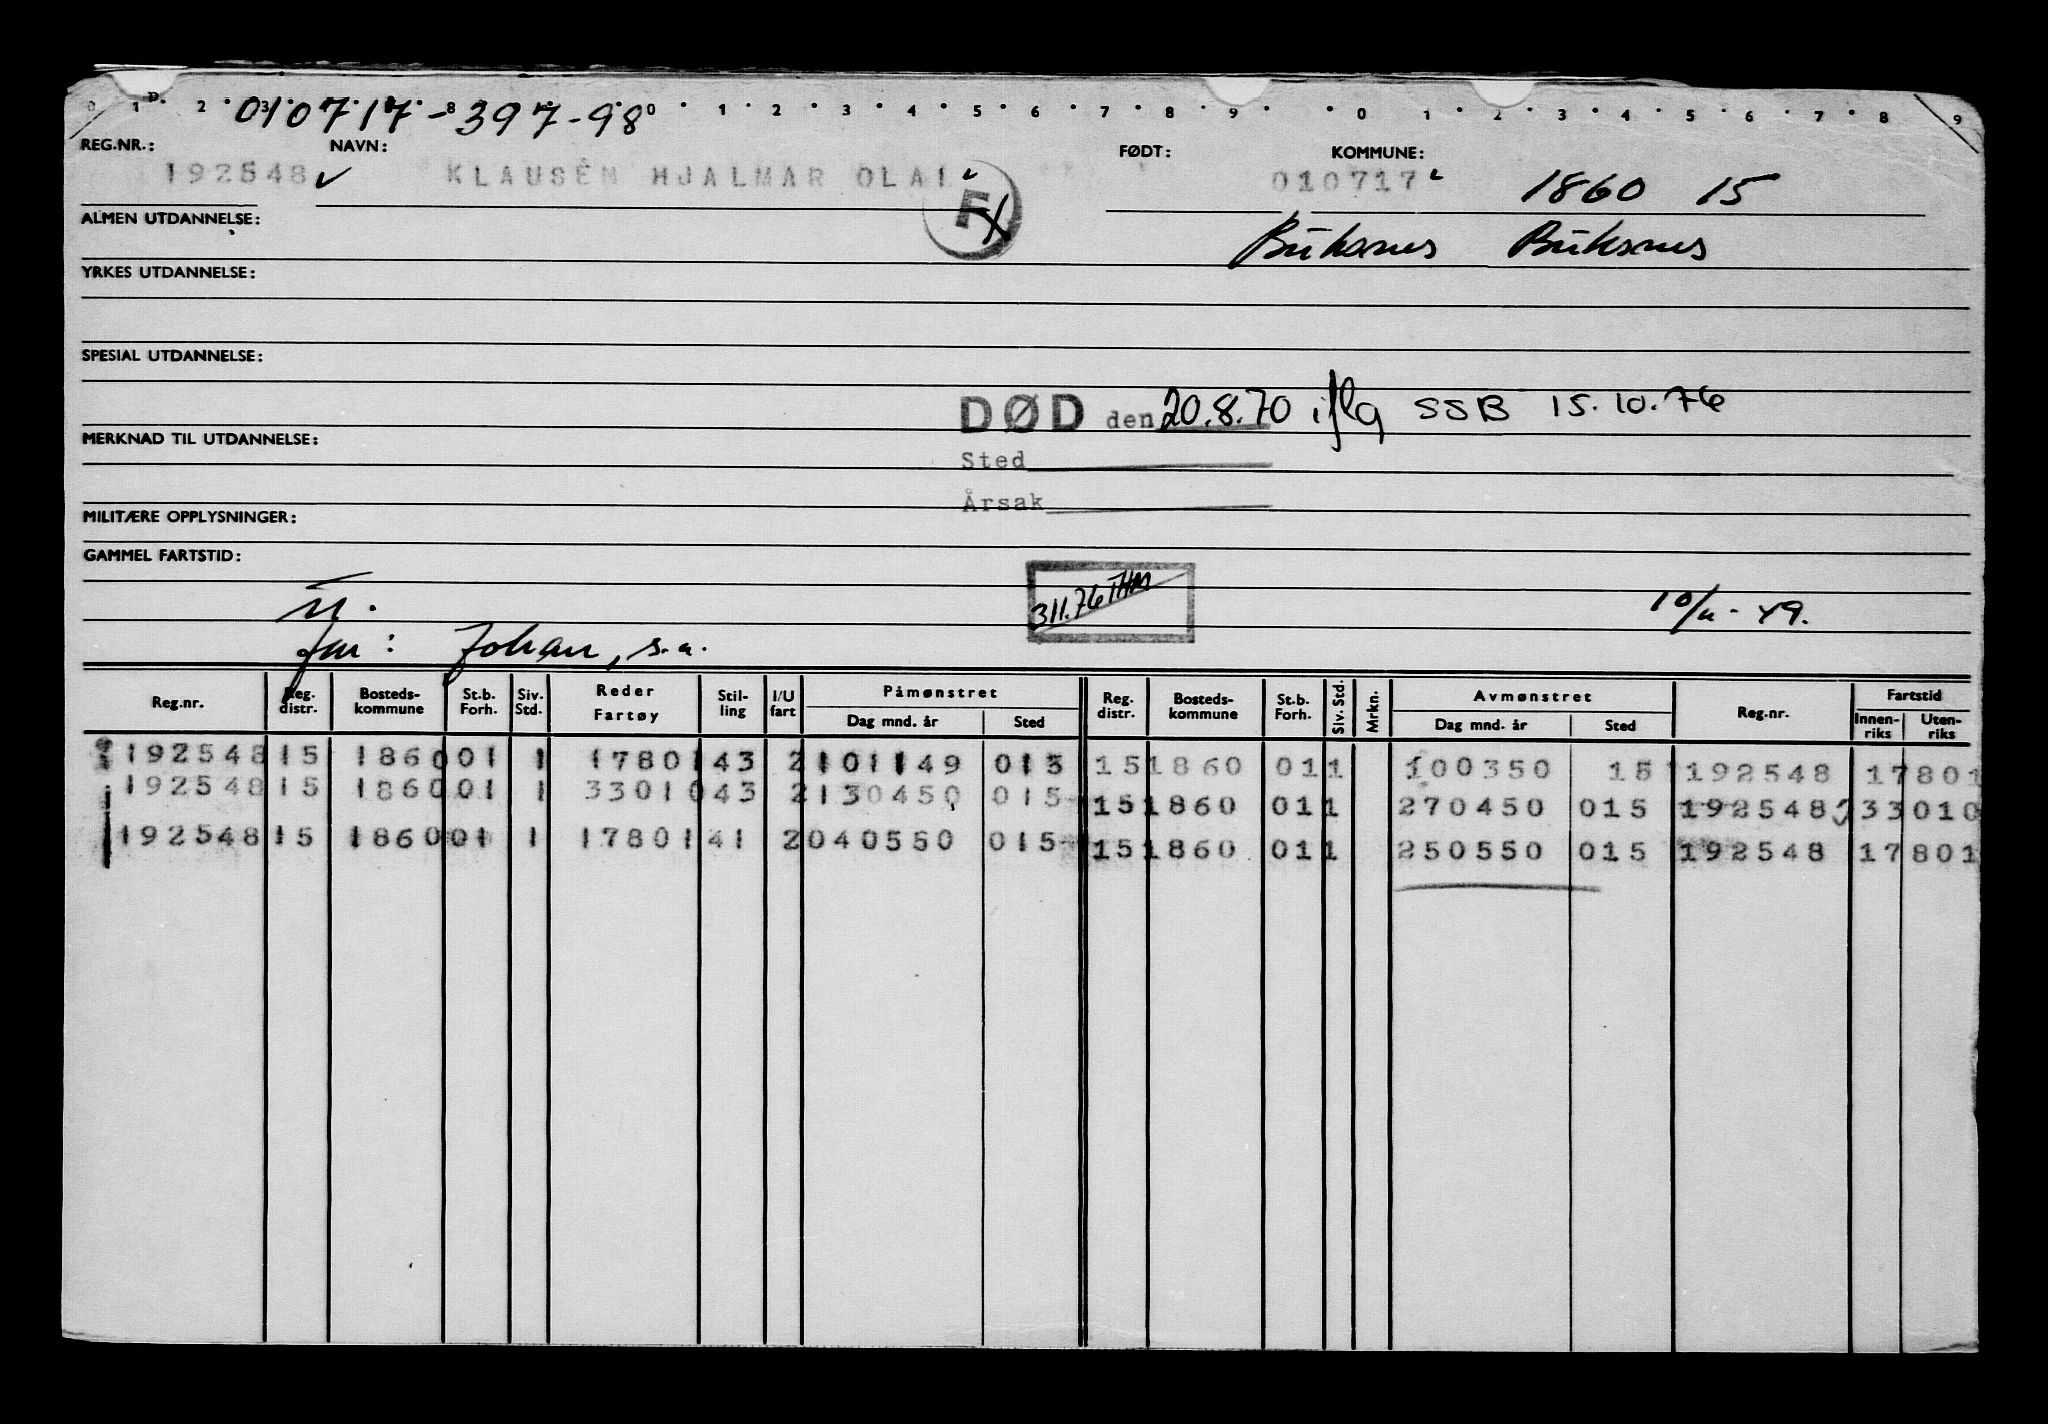 0 1 2 3 8 0 1 2 3 4 5 6 7 8 9 0 1 2 3 4 5 6 7 8 9
010717-39798
REG.NR.: NAVN: FØDT: KOMMUNE:
192548 KLAUSEN HJALMAR OLAI 010717 1860 15
F
ALMEN UTDANNELSE: Buksnes Buksnes
YRKES UTDANNELSE:
SPESIAL UTDANNELSE:
DØD den 20.8.70 iflg SSB 15.10.76
MERKNAD TIL UTDANNELSE:
Sted
Årsak
MILITÆRE OPPLYSNINGER:
GAMMEL FARTSTID:
311.76 THM
far: Johan, s.a.
Reg.nr. Reg. distr. Bosteds-kommune St.b. Forh. Siv. Std. Reder Fartøy Stil-ling I/U fart Påmønstret Dag mnd. år Sted Reg. distr. Bosteds-kommune St.b. Forh. Siv. Std. Mrkn. Avmønstret Dag mnd. år Sted Reg.nr. Fartstid Innen-riks Uten-riks
192548 15 1860 01 1 17801 43 2 101149 015 15 1860 01 1 100350 15 192548 17801
192548 15 1860 01 1 33010 43 2 130450 015 15 1860 01 1 270450 015 192548 33010
192548 15 1860 01 1 17801 41 2 040550 015 15 1860 01 1 250550 015 192548 17801